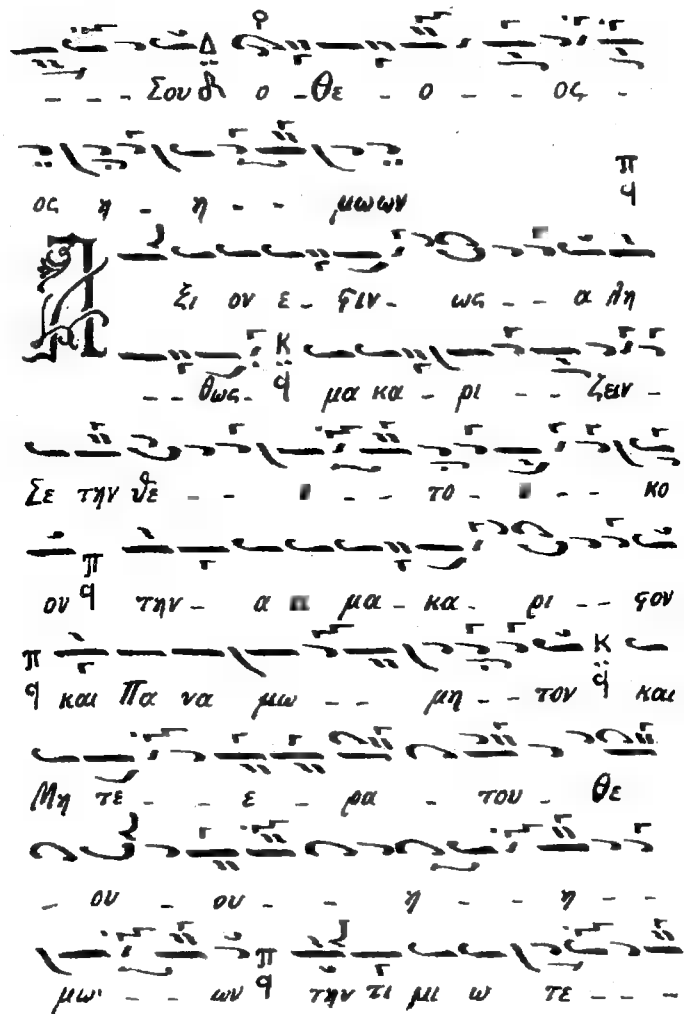 - - - Σου ο - θε - ο - - ος -
ος η - η - - μωων
Α ξι ον ε - ϛιν - ως - - α λη
- - θως - μα κα - ρι - - ζειν -
Σε την θε - - - - το - - - κο
ου την - α μα - κα - ρι - - ϛον
και Πα να μω - - μη - - τον και
Μη τε - - ε - ρα - του - θε
- ου - ου - - η - η - -
μω - - ων την τι μι ω τε - - -